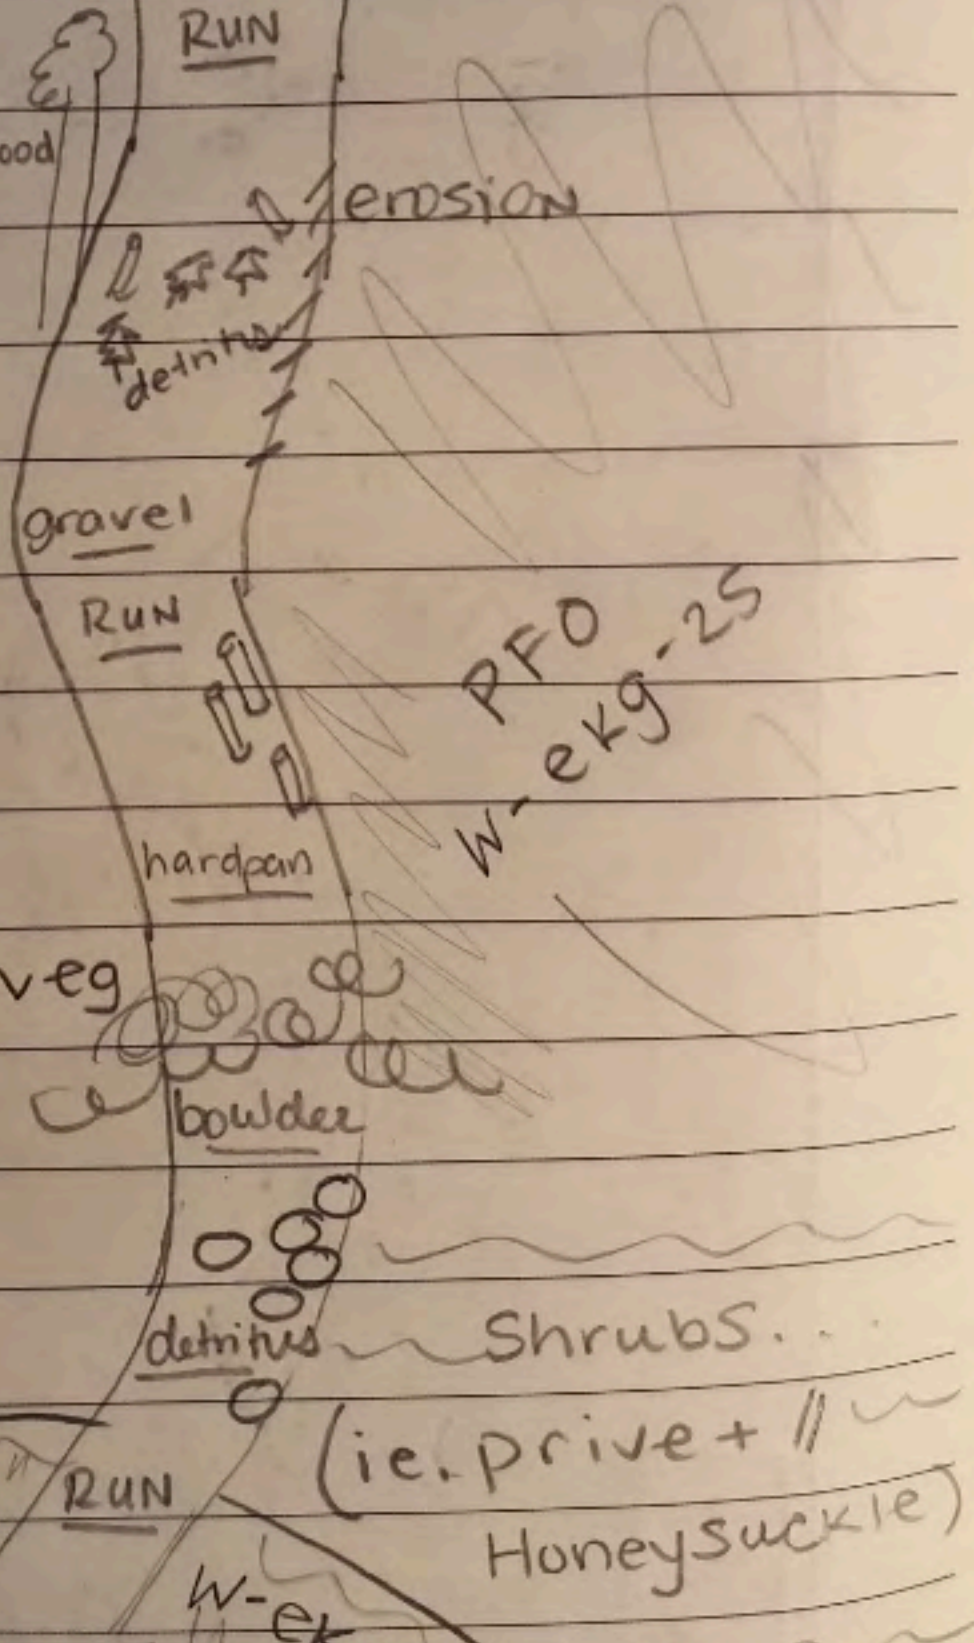 RUN
ood
erosion
detritus
gravel
RUN
PFO
W-ekg-25
hardpan
veg
bowlder
detritus
Shrubs...
(ie. privet //
Honeysuckle)
RUN
W-
ek